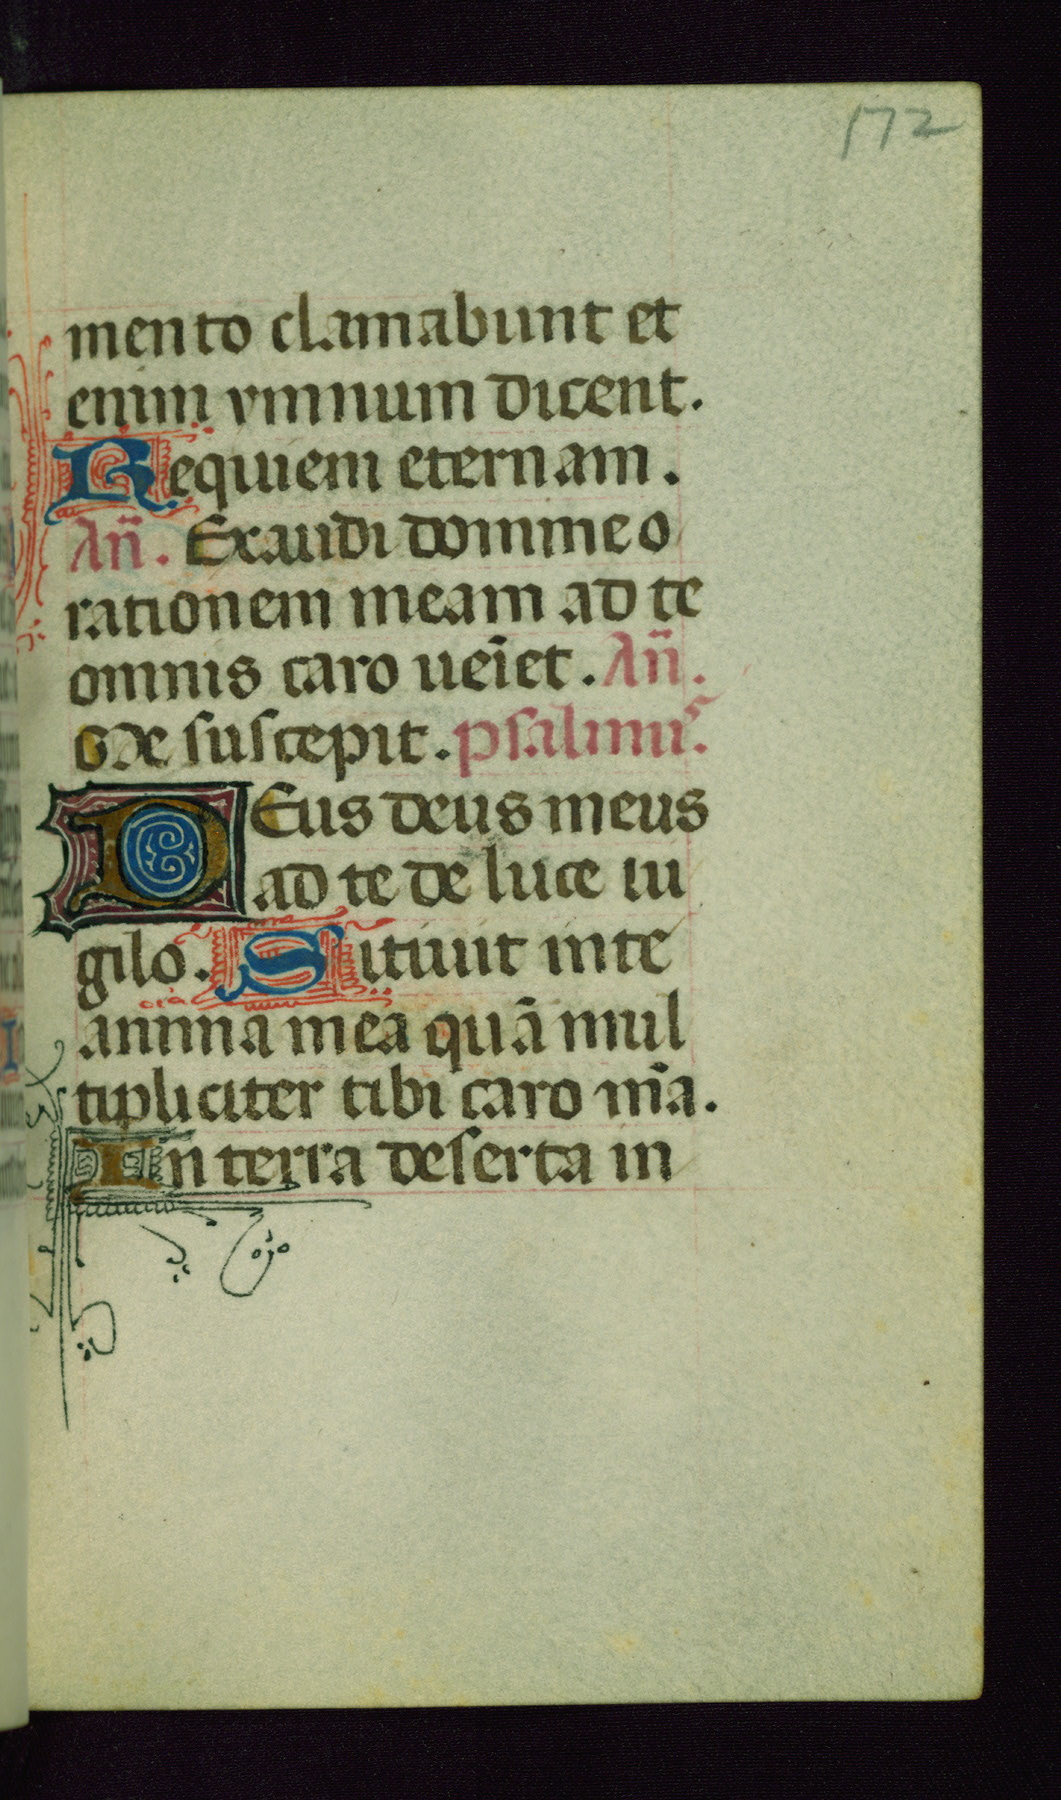 172
mento clamabunt et
enim ymnum dicent.
Requiem eternam.
Añ. Exaudi domine o
rationem meam ad te
omnis caro ueīet. Añ.
me suscepit. psalmus.
DEus deus meus
ad te de luce ui
gilo. Sitiuit in te
anima mea quā mul
tipliciter tibi caro m̄a.
In terra deserta in